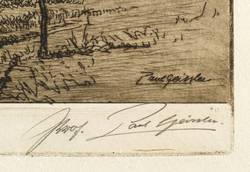 Paul Geissler
Prof. Paul Geissler